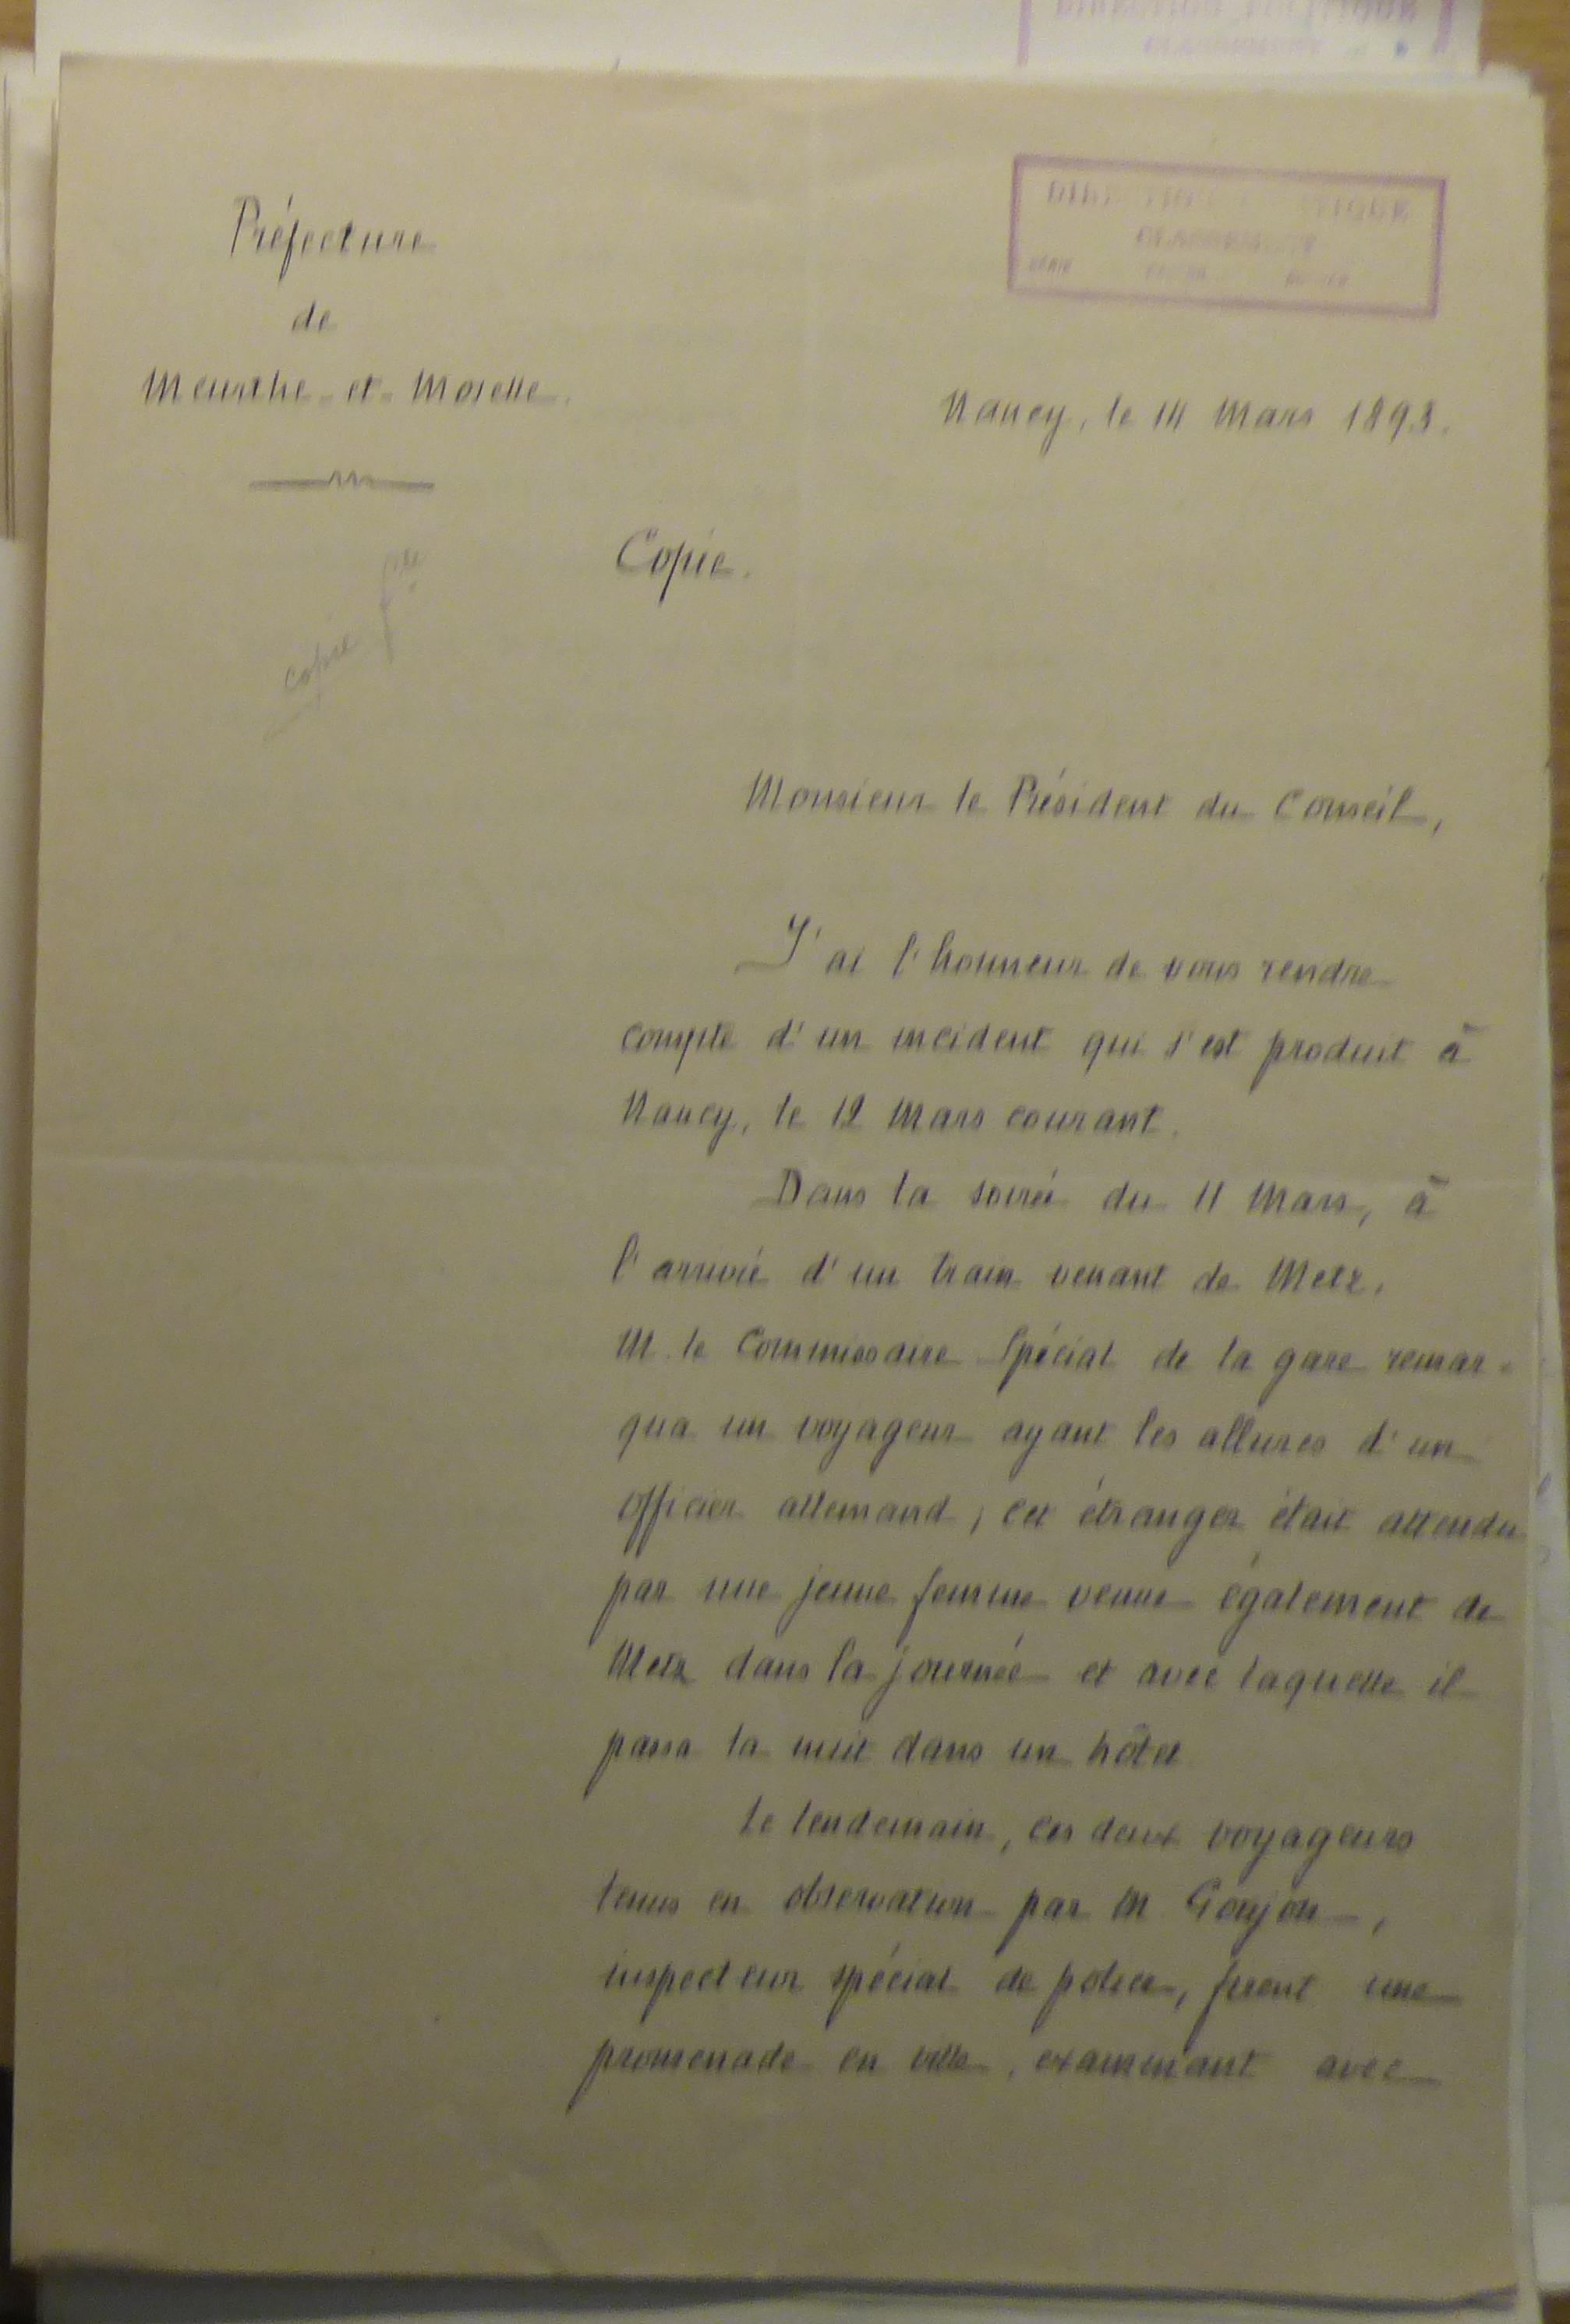 DIRECTION POLITIQUE
Préfecture
de
Meurthe-et-Moselle.
DIRECTION POLITIQUE
CLASSEMENT
SÉRIE DOSSIER
Nancy, le 14 Mars 1893.
Copie.
copie
Monsieur le Président du Conseil,
J'ai l'honneur de vous rendre
compte d'un incident qui s'est produit à
Nancy, le 12 Mars courant.
Dans la soirée du 11 Mars, à
l'arrivée d'un train venant de Metz,
M. le Commissaire Spécial de la gare remar-
qua un voyageur ayant les allures d'un
officier allemand; cet étranger était attendu
par une jeune femme venue également de
Metz dans la journée et avec laquelle il
passa la nuit dans un hôtel
Le lendemain, ces deux voyageurs
tenus en observation par M. Goujon,
inspecteur spécial de police, firent une
promenade en ville, examinant avec